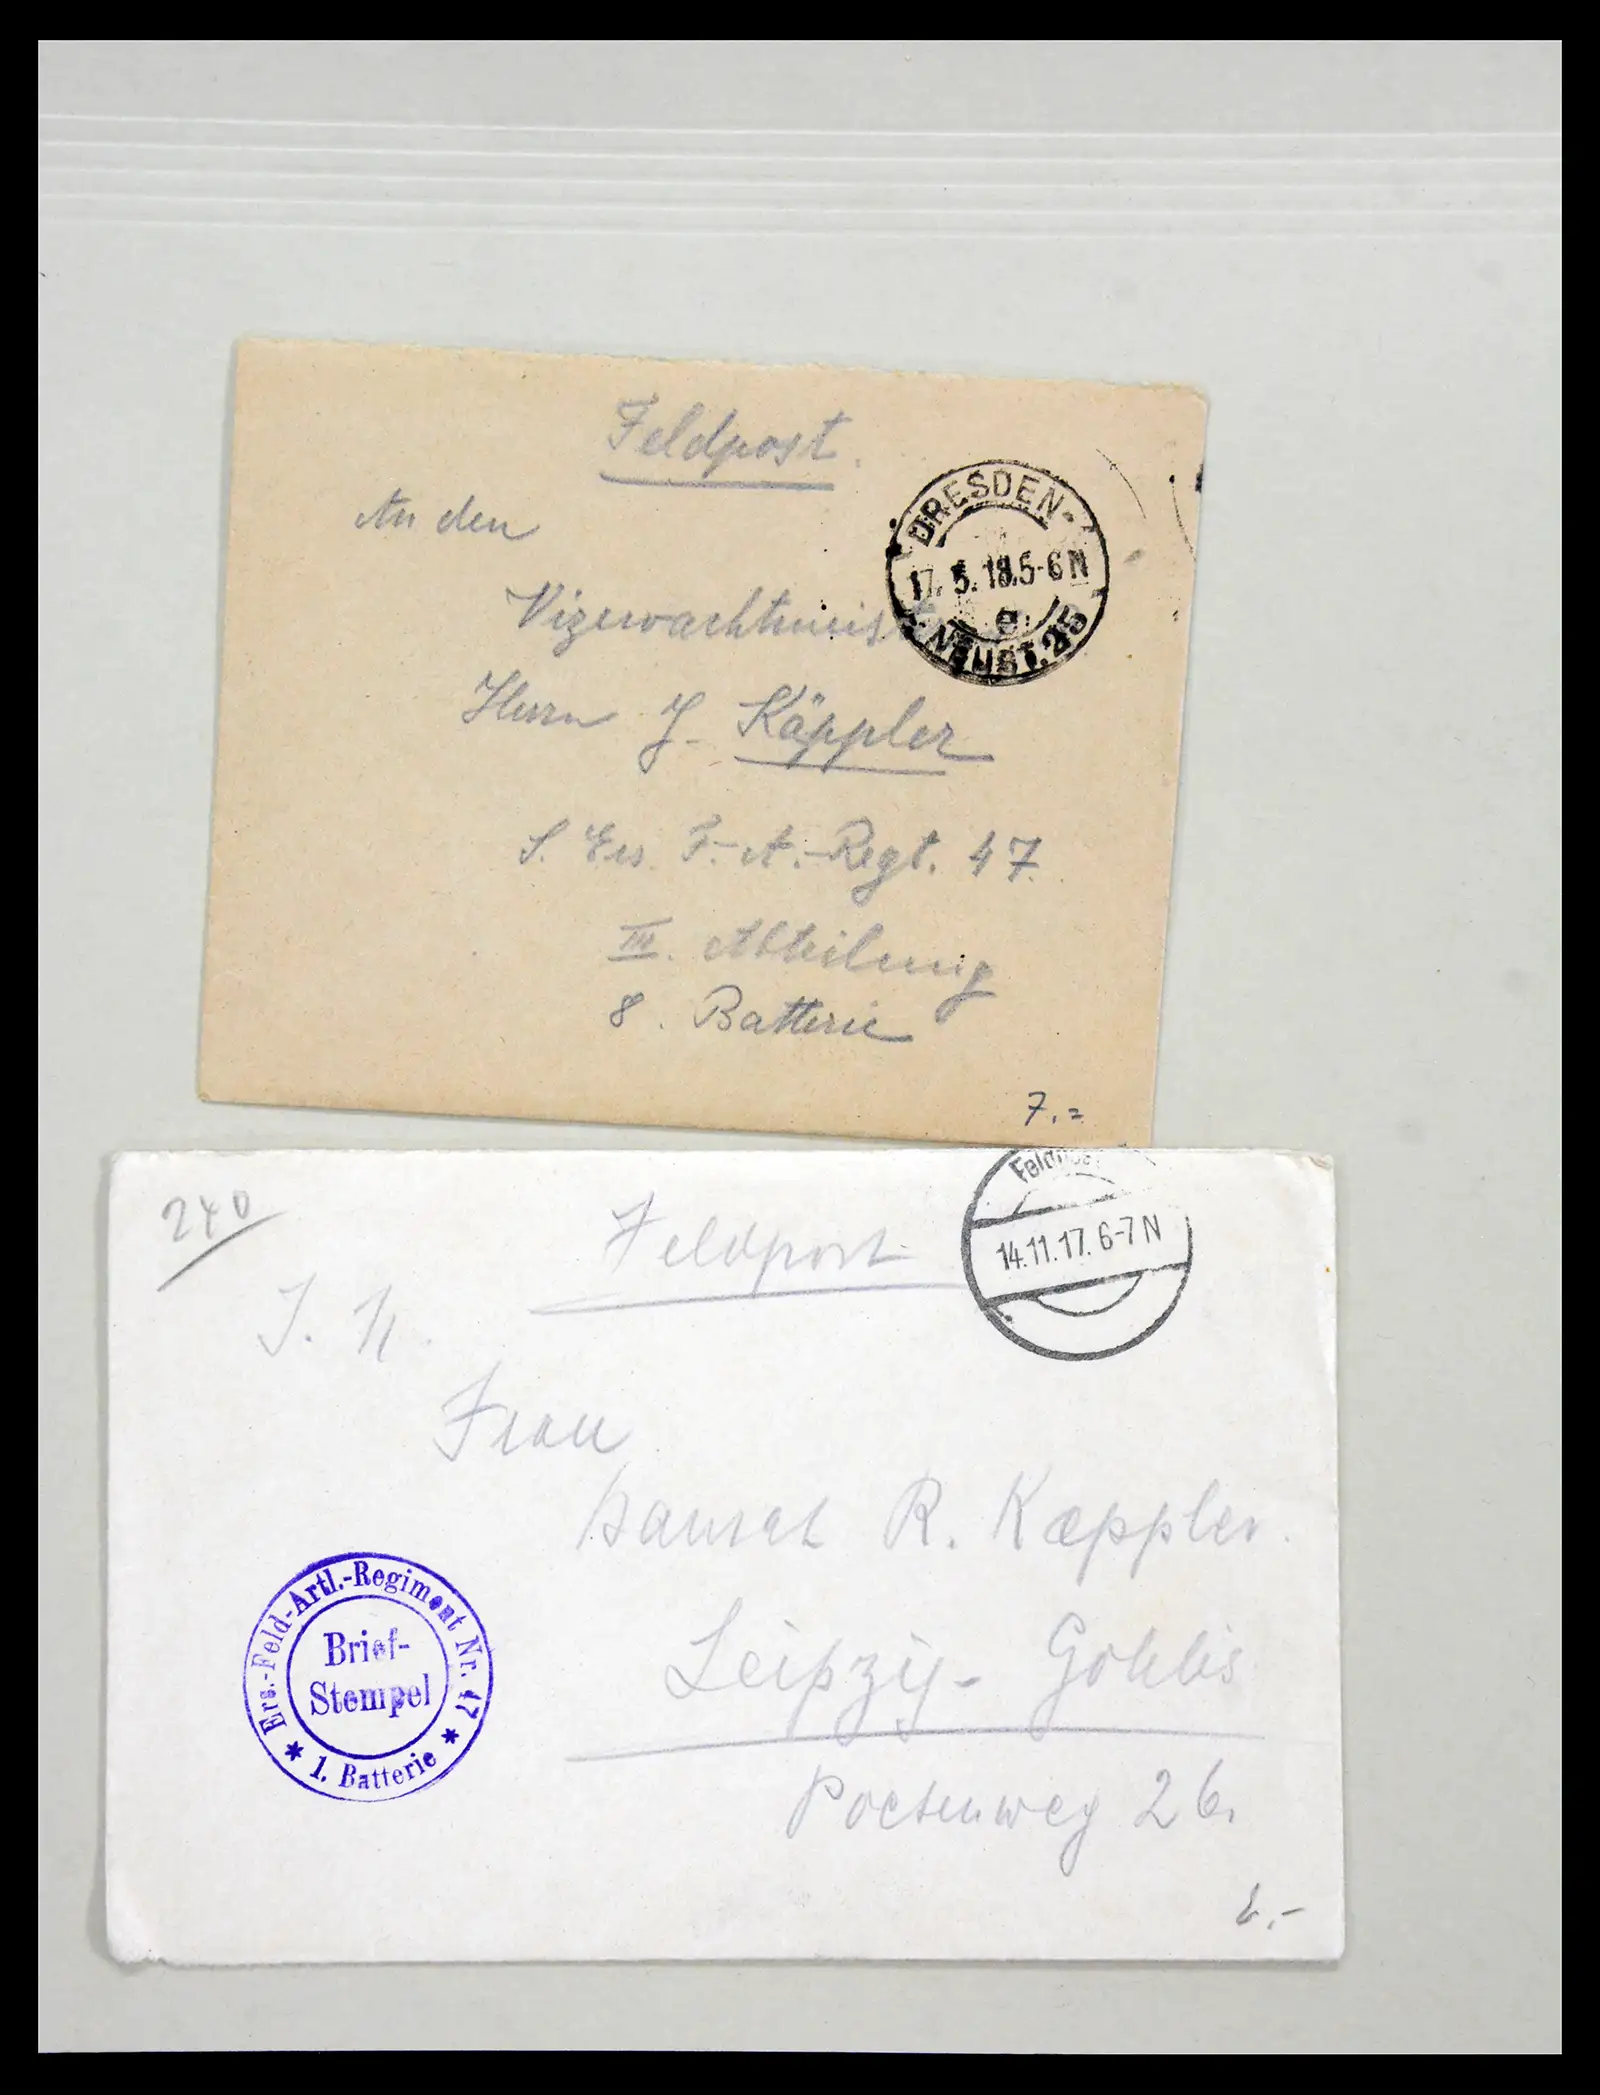 Feldpost.
DRESDEN-
17. 5. 18. 5-6 N
e
NEUST. 25
An den
Vizewachtmeist
Herrn J. Käppler
S. Ers. F.-A.-Regt. 47.
III. Abteilung
8. Batterie
7.=
240
Feldpost
Feldpost
14.11.17. 6-7 N
Frau
R. Kaeppler.
Leipzig- Gohlis
Poetenweg 26.
Ers.-Feld-Artl.-Regiment Nr. 47
Brief-
Stempel
* 1. Batterie *